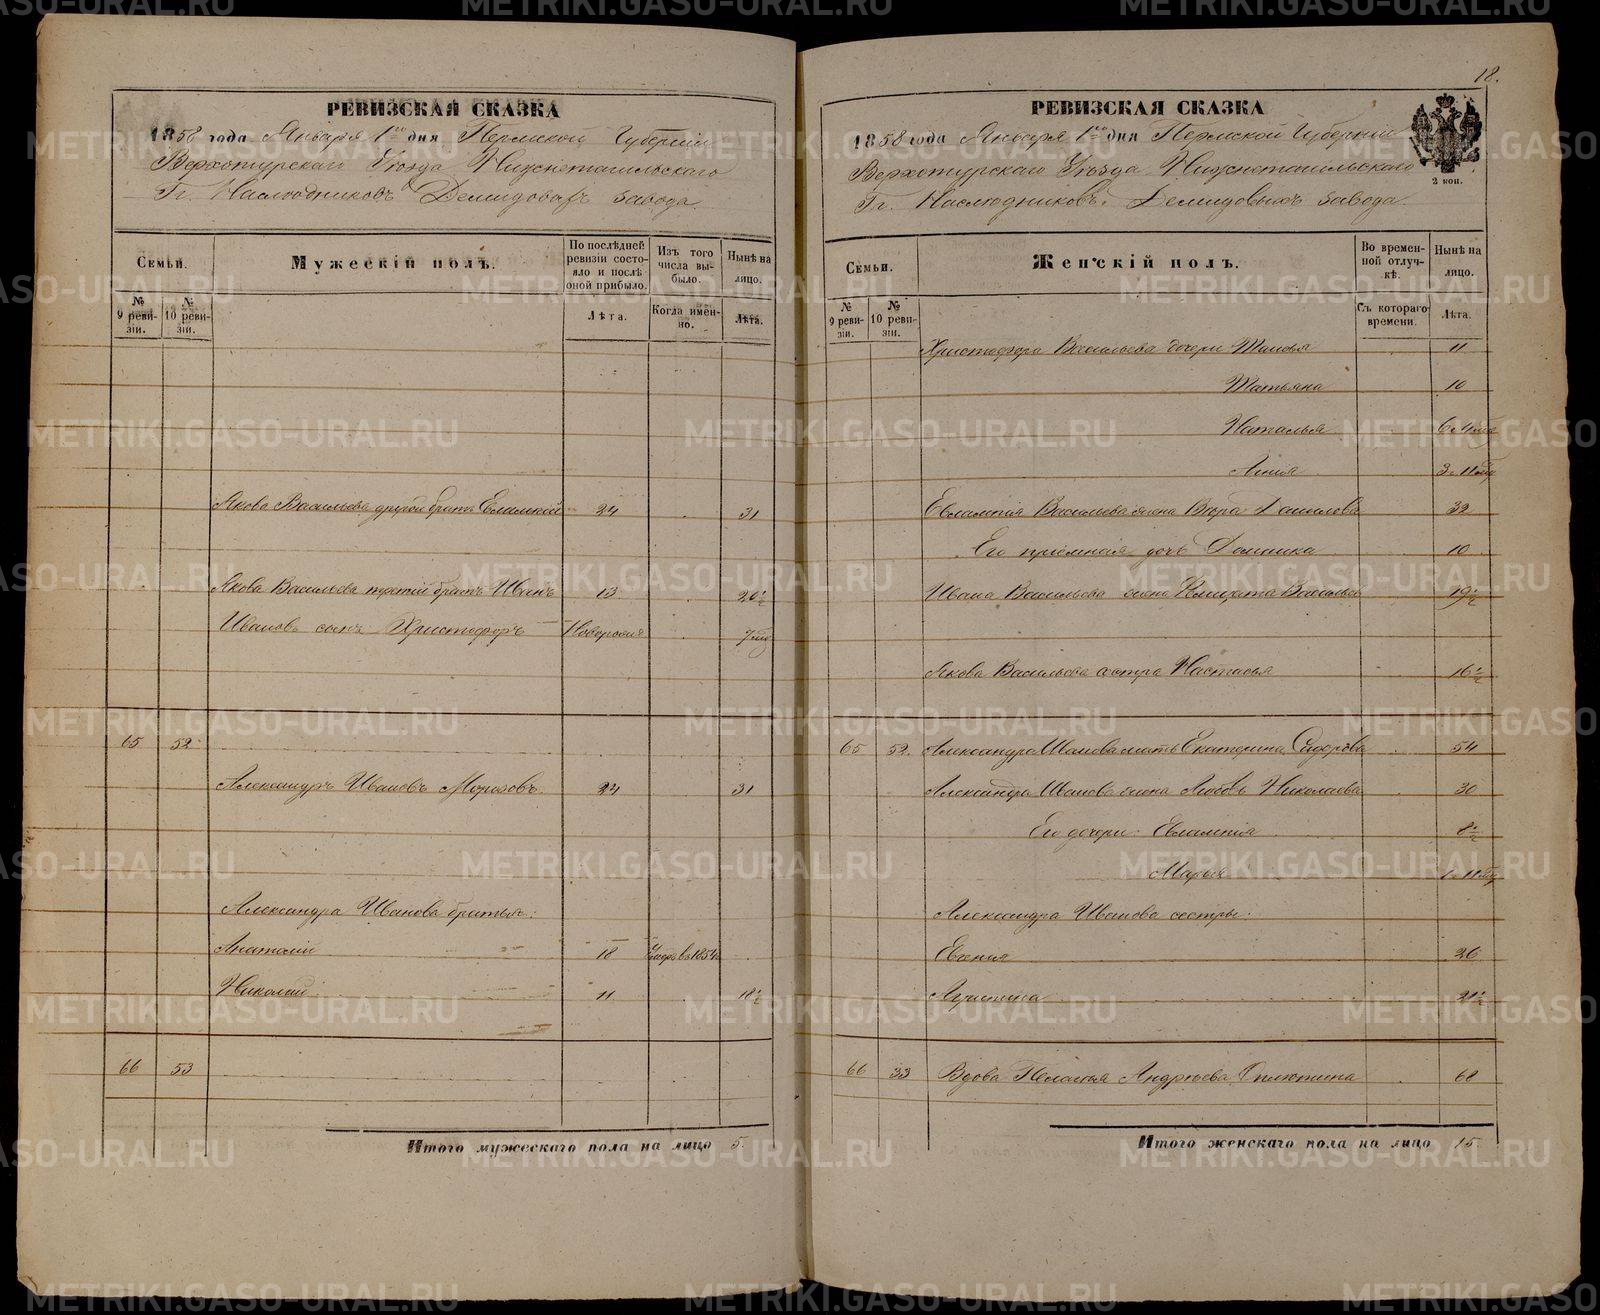 18.
РЕВИЗСКАЯ СКАЗКА
1858 года Января 1го дня Пермской Губерніи
Верхотурскаго Уѣзда Нижнетагильскаго
Гг. Наслѣдниковъ Демидовыхъ завода.
Семьи.
Мужескій полъ.
По послѣдней ревизіи состояло и послѣ оной прибыло.
Изъ того числа выбыло.
Нынѣ на лицо.
№ 9 ревизіи.
№ 10 ревизіи.
Лѣта.
Когда именно.
Лѣта.
Якова Васильева другой братъ Евлампій 24 31
Якова Васильева третій братъ Иванъ 13 20½
Ивановъ сынъ Христофоръ 7 мѣ
65 52
Александръ Ивановъ Морозовъ 24 31
Александра Иванова братья:
Анатолій 18 1854
Николай 11 18½
66 53
Итого мужескаго пола на лицо 5.
РЕВИЗСКАЯ СКАЗКА
1858 года Января 1го дня Пермской Губерніи
Верхотурскаго Уѣзда Нижнетагильскаго
Гг. Наслѣдниковъ Демидовыхъ завода.
2 коп.
Семьи.
Женскій полъ.
Во временной отлучкѣ.
Нынѣ на лицо.
№ 9 ревизіи.
№ 10 ревизіи.
Съ котораго времени.
Лѣта.
Христофора Васильева дочери 11
Татьяна 10
Наталья 6 4 мѣ
Анна 3 11 мѣ
Евлампія Васильева жена 32
Его пріемная дочь Домника 10
Ивана Васильева жена Васильева 19½
Якова Васильева сестра Настасья 16½
65 52. Александра Иванова мать Екатерина Сидорова 54
Александра Иванова жена Любовь Николаева 30
Его дочери: Евлампія 8½
Марья 1 11 мѣ
Александра Иванова сестры:
Евгенія 26
21½
66 53 Вдова Пелагья Андреева 68
Итого женскаго пола на лицо 15.
METRIKI.GASO-URAL.RU